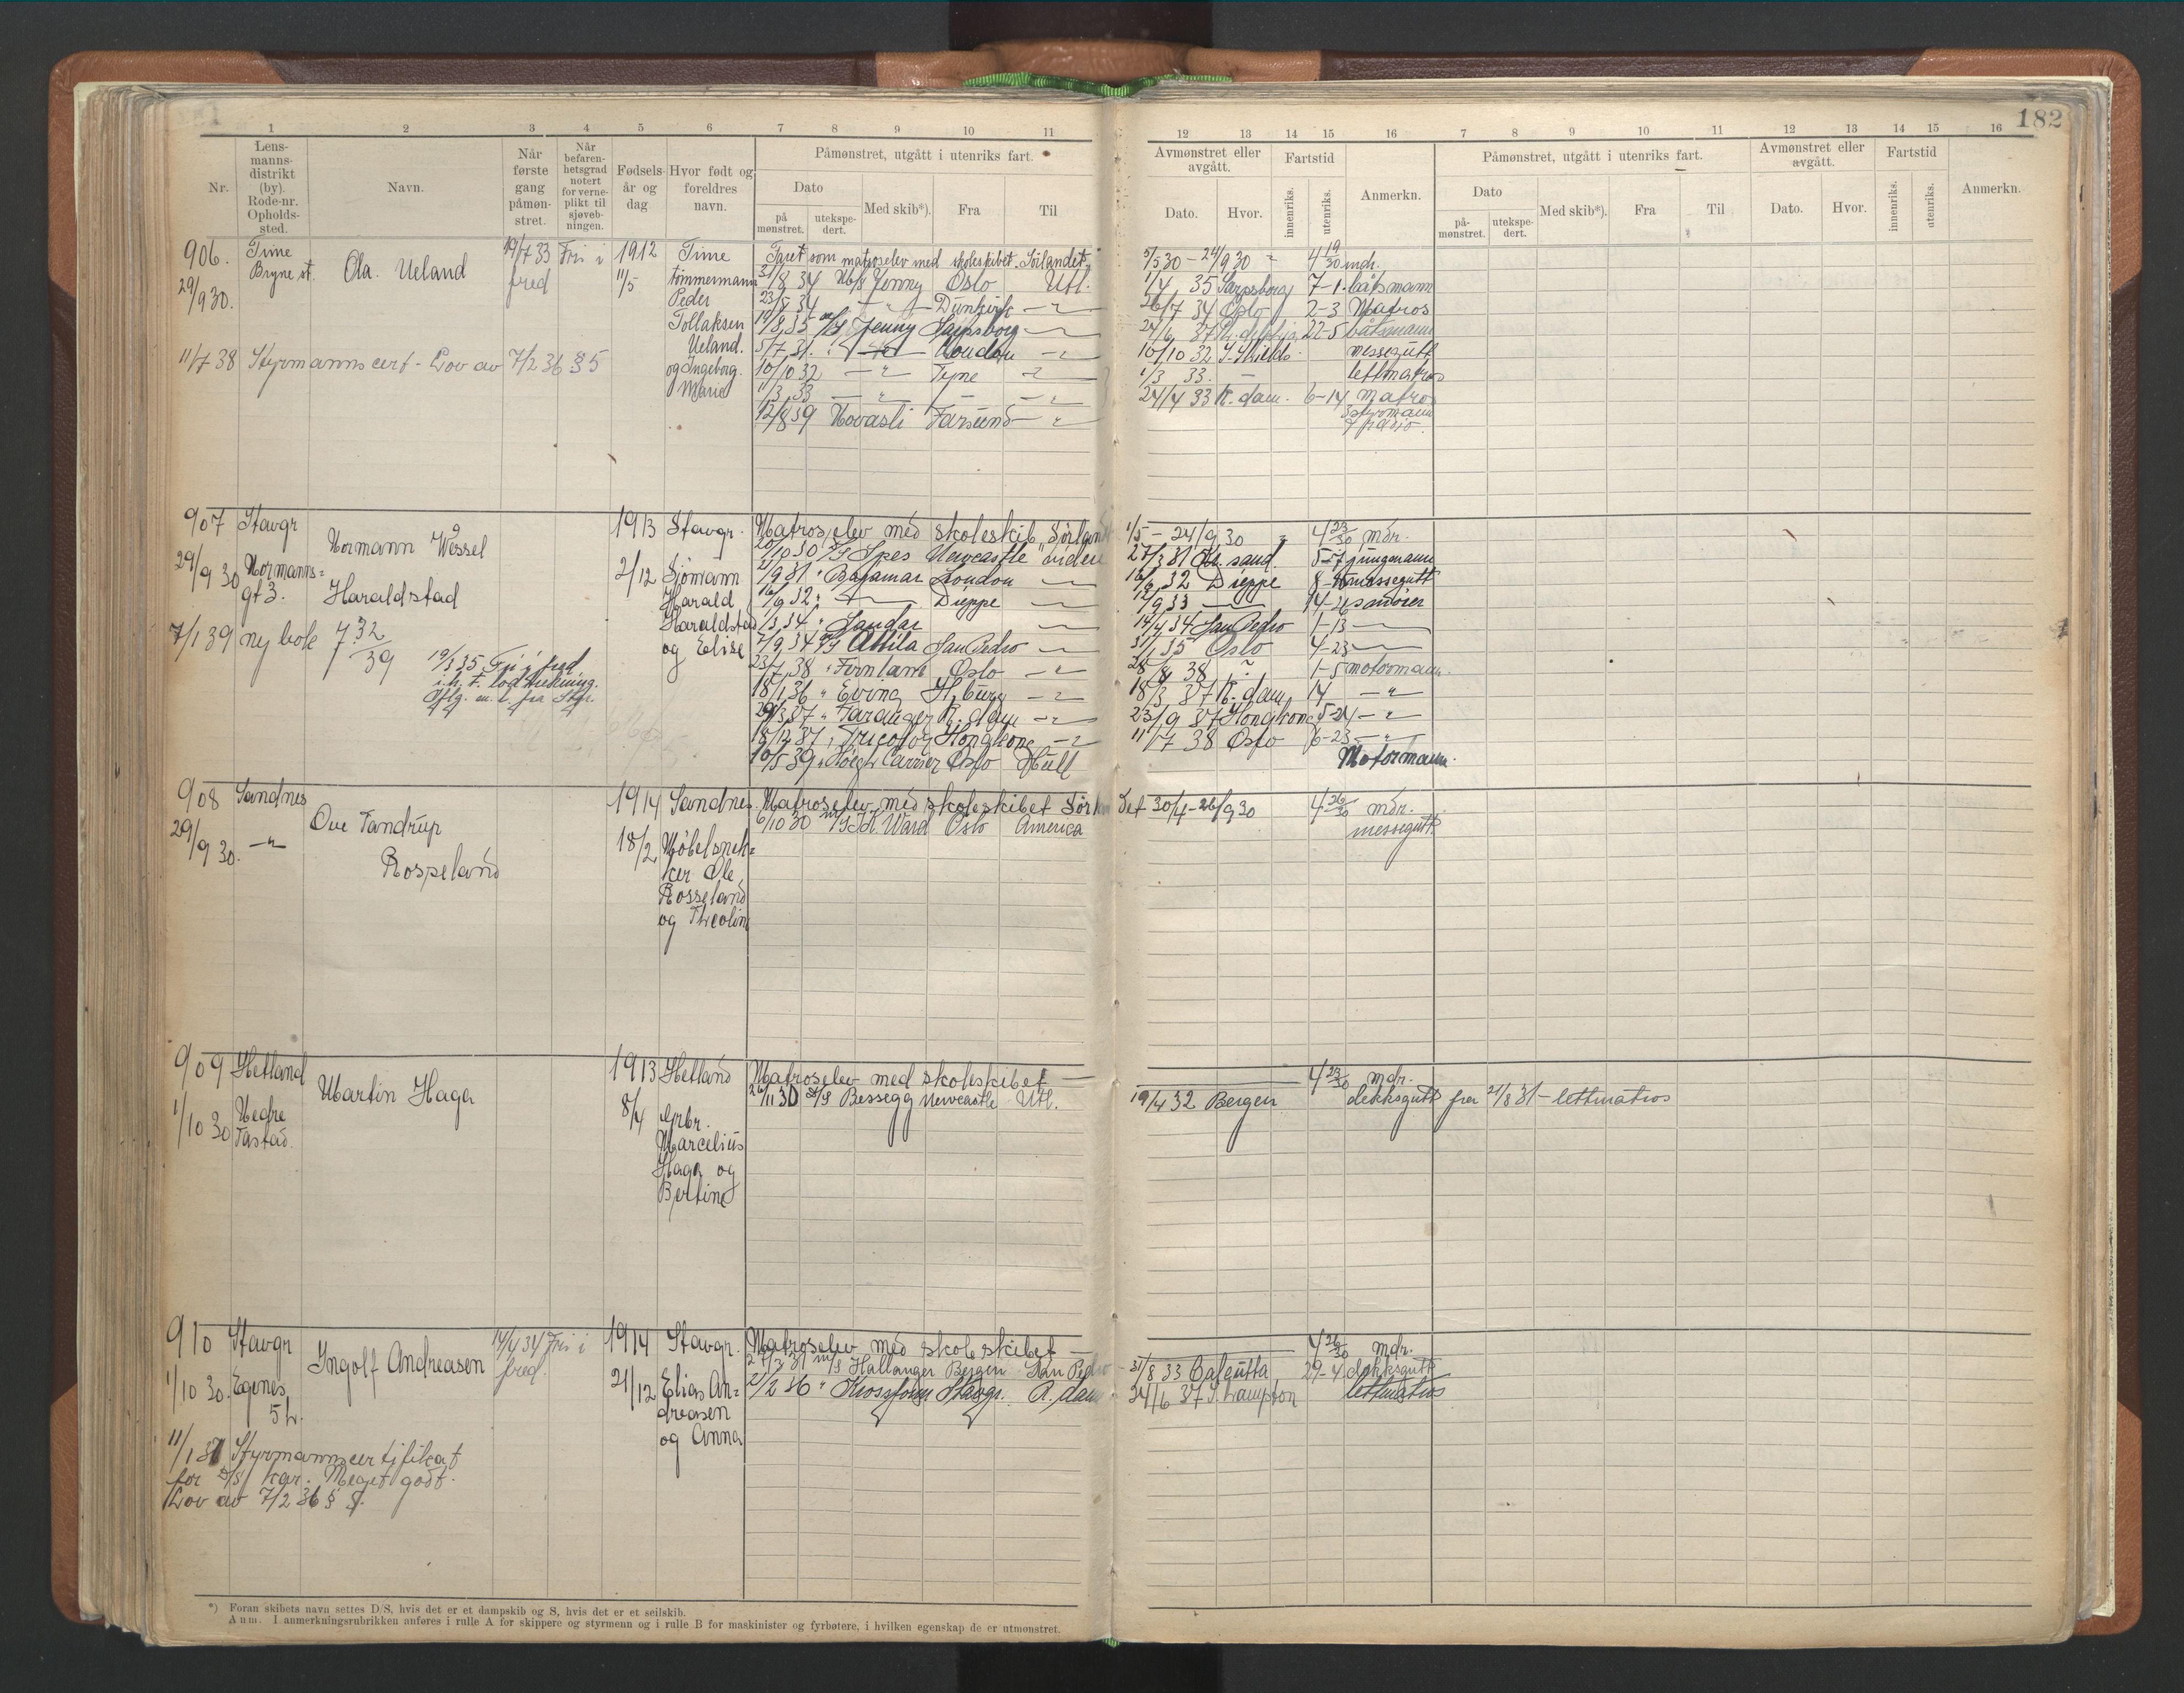 182
1 2 3 4 5 6 7 8 9 10 11
12 13 14 15 16 7 8 9 10 11 12 13 14 15 16
Nr.
Lens-
manns-
distrikt
(by).
Rode-nr.
Opholds-
sted.
Navn.
Når
første
gang
påmøn-
stret.
Når
befaren-
hetsgrad
notert
for verne-
plikt til
sjøveb-
ningen.
Fødsels-
år og
dag
Hvor født og
foreldres
navn.
Påmønstret, utgått i utenriks fart.
Dato
på
mønstret.
utekspe-
dert.
Med skib*).
Fra
Til
Avmønstret eller
avgått.
Dato.
Hvor.
Fartstid
innenriks.
utenriks.
Anmerkn.
Påmønstret, utgått i utenriks fart.
Dato
på-
mønstret.
utekspe-
dert.
Med skib*).
Fra
Til
Avmønstret eller
avgått.
Dato.
Hvor.
Fartstid
innenriks.
utenriks.
Anmerkn.
906. Time
Bryne st.
29/9 30.
Ola. Ueland
19/7 33 Fri i
fred
1912
11/5
Time
tømmermann
Peder
Tollaksen
Ueland.
og Ingeborg
Marie
11/7 38 Styrmannscert - Lov av 7/2 36 § 5
Faret som matroselev med skoleskibet "Sørlandet" 5/5 30 - 24/9 30 4 19/30 mdr.
31/8 34 M/S Jenny Oslo Utl. 1/4 35 Sarpsborg 7-1 båtsmann
23/5 34 Dunkirk 26/7 34 Oslo 2-3 Matros
19/8 35 Jenny Sarpsborg 22-5 båtsmann
5/7 31. London 10/10 32 S. Shields messegutt
10/10 32 Tyne 1/3 33. lettmatros
1/3 33 24/4 33 R. dam. 6-14 matros
12/8 39 Farsund 3 styrmann
907 Stavgr
29/9 30 Normanns=
gt 3.
Normann Wessel
Haraldstad
1913
2/12
Stavgr.
Sjømann
Harald
Haraldstad
og Elise
7/1 39 ny bok
19/3 35 Fri i fred
i. h. t. loddtrekning.
Matroselev med skoleskib "Sørlandet 1/5 - 24/9 30 4 23/30 mdr.
20/10 30 D/S Spes Newcastle videre 27/3 31 Kr. sand. 5-7 jungmann
2/9 31 " London 16/6 32 Dieppe messegutt
16/6 32 " Dieppe 12/9 33 14-26 smører
1/3 34 " Sandar 14/4 34 San Pedro 1-13
7/9 34 Attila San Pedro 31/1 35 Oslo 4-23
23/7 38 " Fernlane Oslo 28/8 38 1-5 motormann
18/1 36 " Evina H. burg 18/3 37 R. dam 14
29/3 37 " Taranger R. dam 23/9 37 Hongkong 5-24
18/12 37 " Tricolor Hongkong 11/7 38 Oslo 6-23
10/5 39 " Høegh Carrier Oslo Hull Motormann.
908 Sandnes
29/9 30.
Ove Tandrup
Rosseland
1914
18/2
Sandnes.
Møbelsnek=
ker Ole
Rosseland
og Theoline
Matroselev med skoleskibet Sørlan det 30/4 - 26/9 30 4 26/30 mdr.
6/10 30 M/S J. K. Ward Oslo America messegutt
909 Hetland
1/10 30 Nedre
Tastad.
Martin Haga
1913
8/4
Hetland
Arbr.
Marcelius
Haga og
Bertine
Matroselev med skoleskibet 4 23/30 mdr.
26/11 30 D/S Bessegg Newcastle Utl. 19/4 32 Bergen dekksgutt fra 21/8 31 - lettmatros
910 Stavgr
1/10 30. Egenes
5 h.
Ingolf Andreasen
14/4 34 Fri i
fred.
1914
21/12
Stavgr.
Elias An=
dreasen
og Anna
Matroselev med skoleskibet 4 26/30 mdr.
27/3 31 M/S Hallanger Bergen San Pedro 31/8 33 Calcutta 29-4 dekksgutt
2/2 36 " Krossfonn Stavgr. R. dam 24/6 37 S. hampton lettmatros
11/1 37 Styrmannscertifikat
for D/S kar. Meget godt.
Lov av 7/2 36 § 5.
*) Foran skibets navn settes D/S, hvis det er et dampskib og S, hvis det er et seilskib.
Anm. I anmerkningsrubrikken anføres i rulle A for skippere og styrmenn og i rulle B for maskinister og fyrbøtere, i hvilken egenskap de er utmønstret.